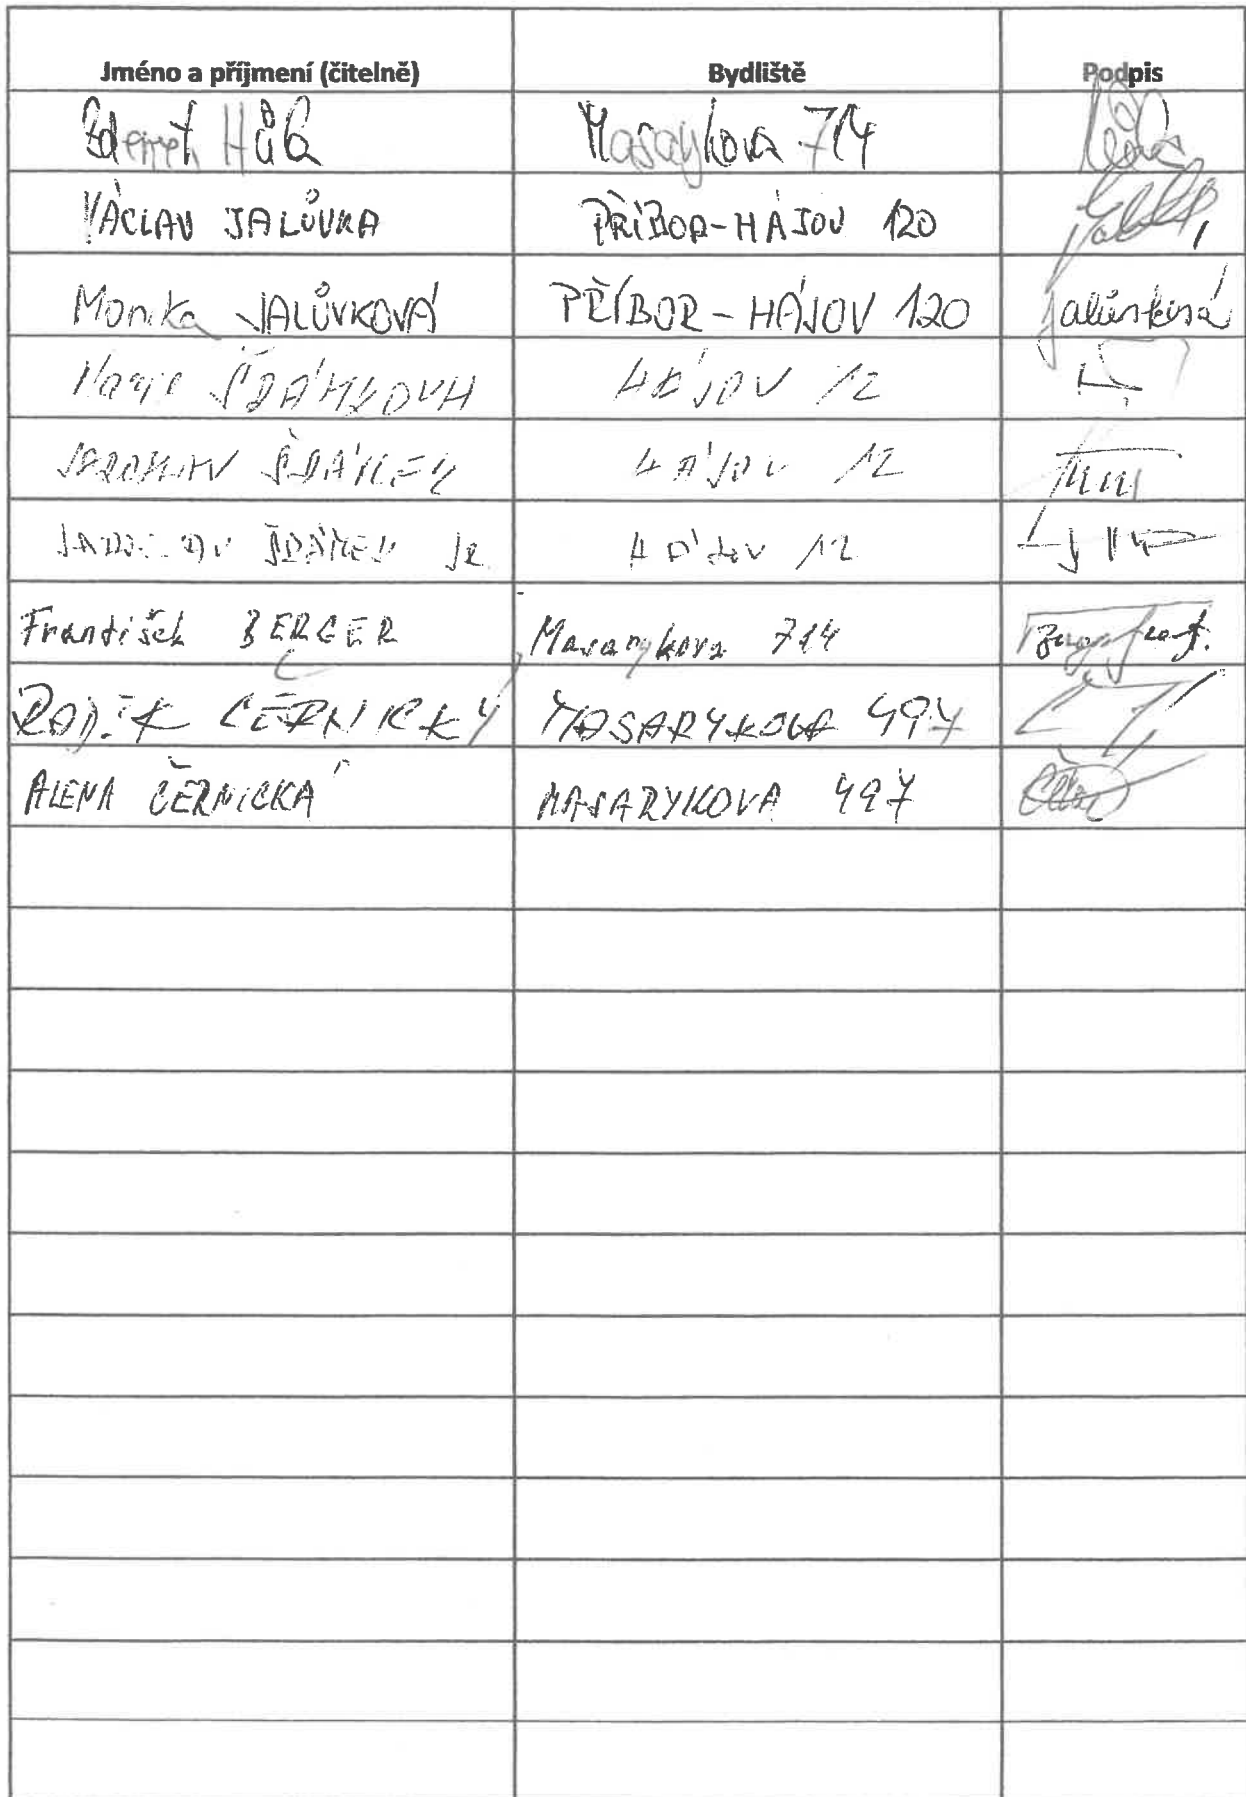 Jméno a příjmení (čitelně) Bydliště Podpis
Hůla Masarykova 714
VÁCLAV JALŮVKA PŘÍBOR-HÁJOV 120
Monika JALŮVKOVÁ PŘÍBOR-HÁJOV 120 Jalůvková
ŠDÁMKOVÁ HÁJOV 12
JAROSLAV ŠDÁMEK HÁJOV 12
JAROSLAV ŠDÁMEK HÁJOV 12
František BERGER Masarykova 714
RADEK ČERNICKÝ MASARYKOVA 497
ALENA ČERNICKÁ MASARYKOVA 497